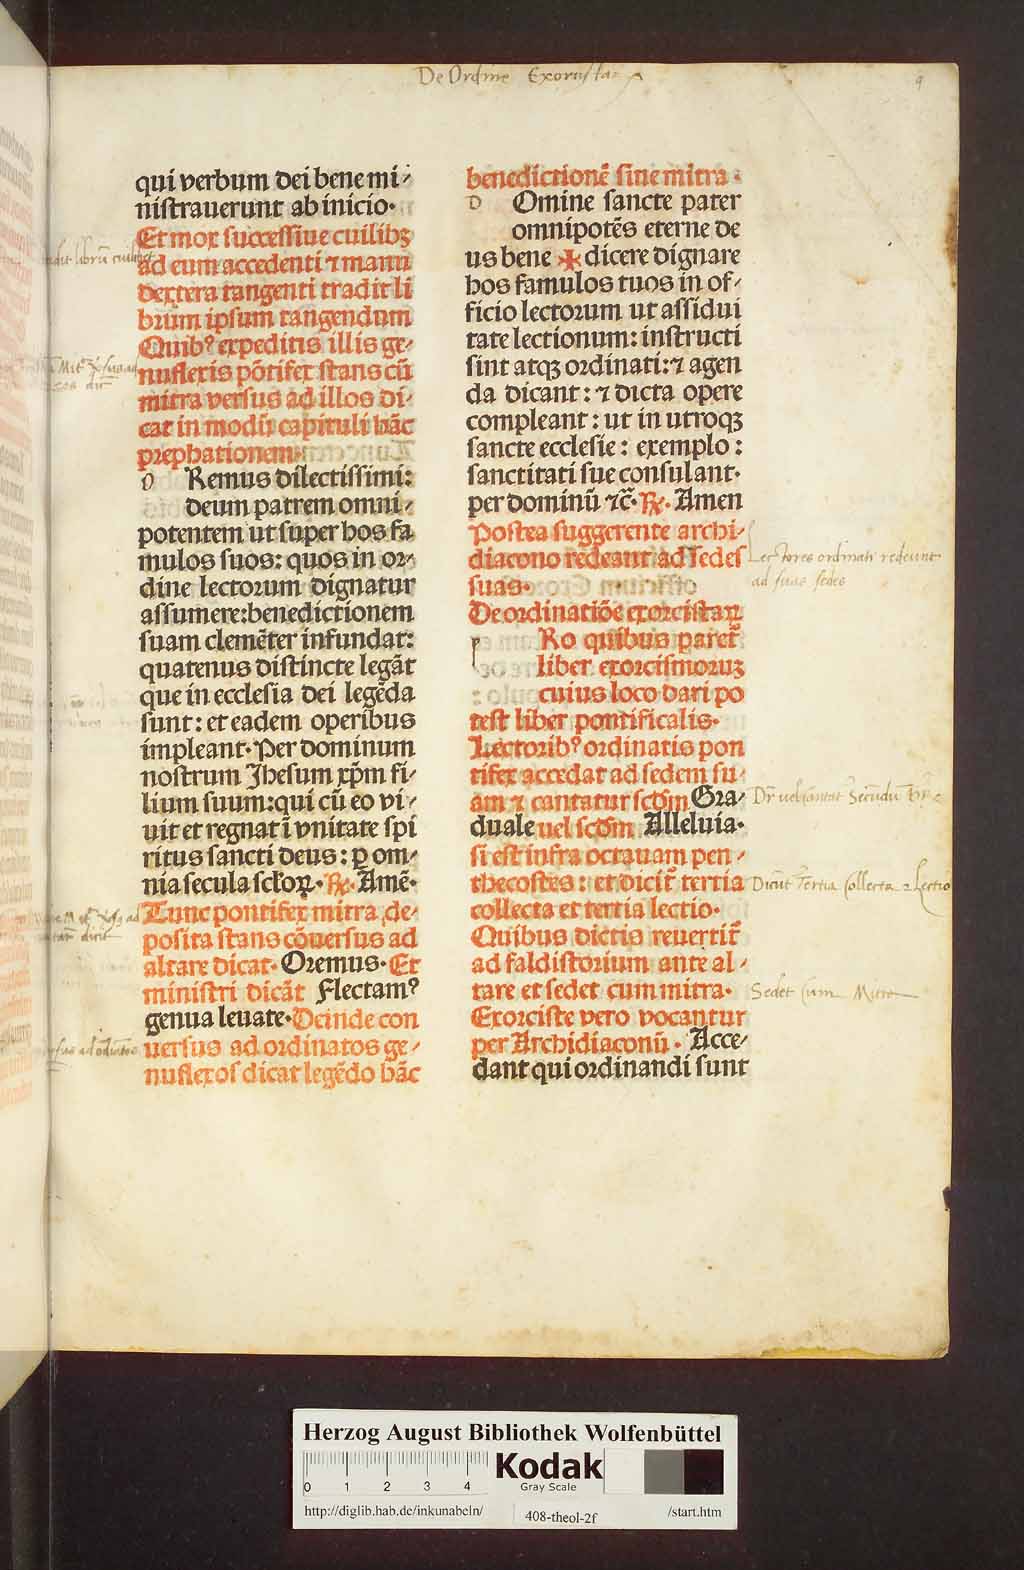 De Ordine Exorcista
9
qui verbum dei bene mi⸗
nistrauerunt ab inicio·
Et mox successiue cuilibꝫ
ad eum accedenti ⁊ manu
dextera tangenti tradit li
brum ipsum tangendum
Quibꝰ expeditis illis ge⸗
nuflexis põtifex stans cũ
mitra versus ad illos di⸗
cat in modũ capituli hãc
prephationem·
o Remus dilectissimi:
deum patrem omni⸗
potentem ut super hos fa
mulos suos: quos in or⸗
dine lectorum dignatur
assumere: benedictionem
suam clemẽter infundat:
quatenus distincte legãt
que in ecclesia dei legẽda
sunt: et eadem operibus
impleant· Per dominum
nostrum Jhesum xp̃m fi⸗
lium suum: qui cũ eo vi⸗
uit et regnat ĩ vnitate spi
ritus sancti deus: ꝑ om⸗
nia secula sc̃loꝝ· ℟· Amẽ·
Tunc pontifex mitra de⸗
posita stans cõuersus ad
altare dicat· Oremus· Et
ministri dicãt Flectamꝰ
genua leuate· Deinde con
uersus ad ordinatos ge⸗
nuflexos dicat legẽdo hãc
benedictionẽ sine mitra·
o Omine sancte pater
omnipotẽs eterne de
us bene ✠ dicere dignare
hos famulos tuos in of⸗
ficio lectorum ut assidui
tate lectionum: instructi
sint atqꝫ ordinati: ⁊ agen
da dicant: ⁊ dicta opere
compleant: ut in utroqꝫ
sancte ecclesie: exemplo:
sanctitati sue consulant·
per dominũ ⁊c̃· ℟· Amen
Postea suggerente archi⸗
diacono redeant ad sedes
suas·
De ordinatiõe exorcistaꝝ
p Ro quibus paret᷑
liber exorcismoruꝫ
cuius loco dari po
test liber pontificalis·
Lectoribꝰ ordinatis pon
tifex accedat ad sedem su⸗
am ⁊ cantatur scd̃m Gra⸗
duale uel scd̃m Alleluia·
si est infra octauam pen⸗
thecostes: et dicit᷑ tertia
collecta et tertia lectio·
Quibus dictis reuertit᷑
ad faldistorium ante al⸗
tare et sedet cum mitra·
Exorciste vero vocantur
per Archidiaconũ· Acce⸗
dant qui ordinandi sunt
Lectores ordinati redeunt
ad suas sedes
Dicũt Tertia Collecta ⁊ Lectio
Sedet Cum Mitra
Herzog August Bibliothek Wolfenbüttel
0 1 2 3 4
Kodak
Gray Scale
http://diglib.hab.de/inkunabeln/ 408-theol-2f /start.htm